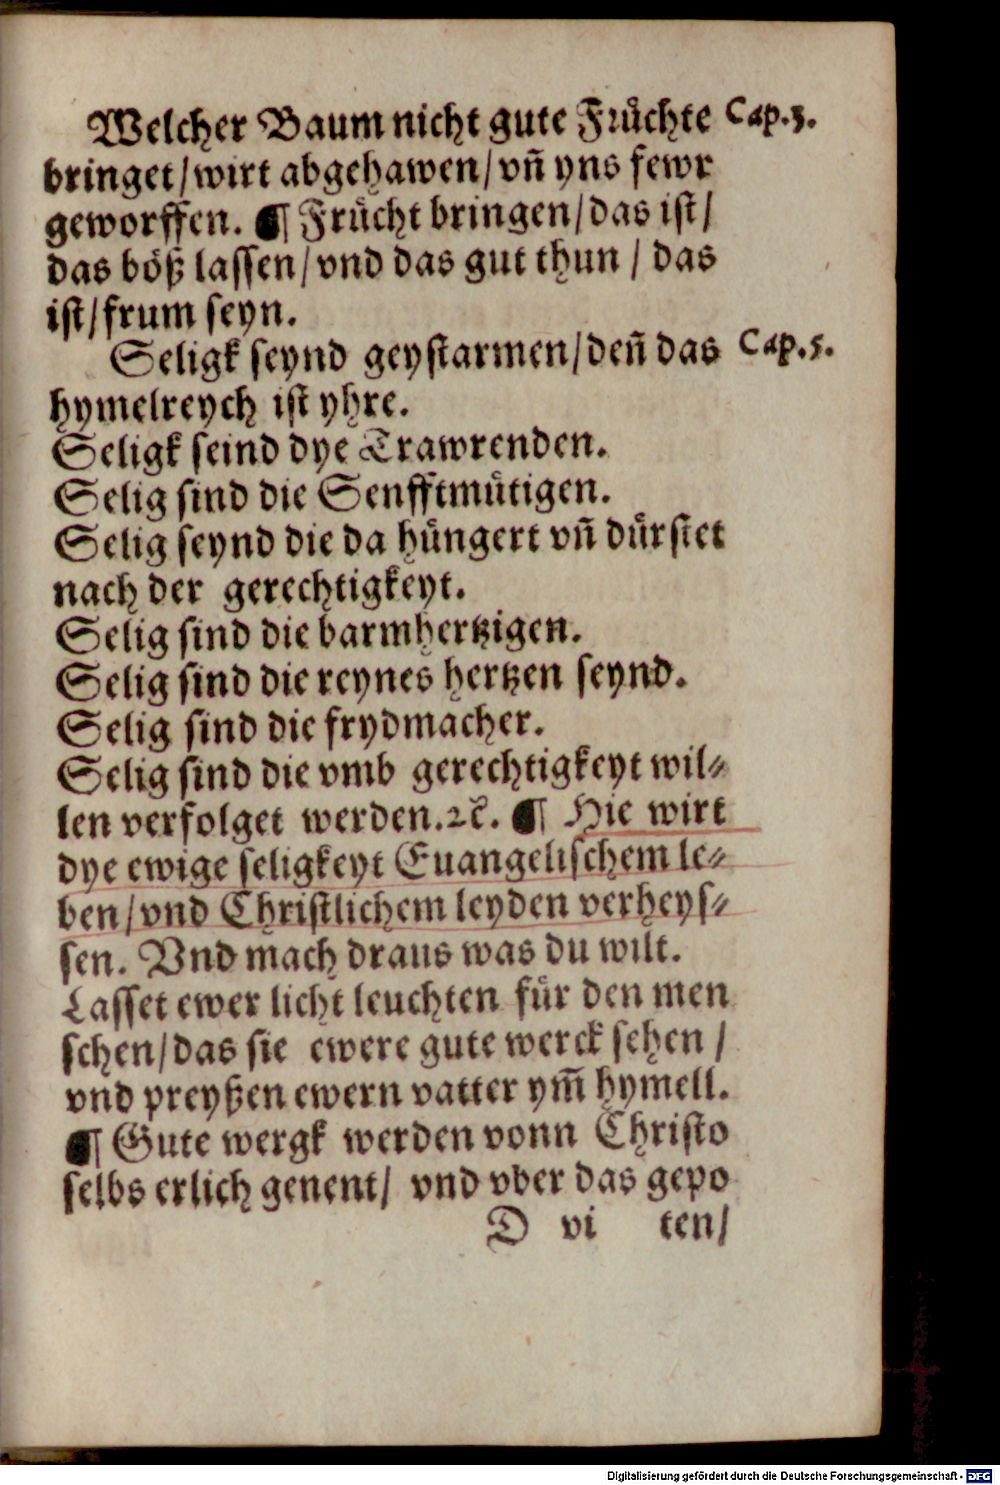 Welcher Baum nicht gute Frůchte Cap.3.
bringet/wirt abgehawen/vñ yns fewr
geworffen. ¶ Frůcht bringen/das ist/
das bőß lassen/vnd das gut thun / das
ist/frum seyn.
Seligk seynd geystarmen/deñ das Cap.5.
hymelreych ist yhre.
Seligk seind dye Trawrenden.
Selig sind die Senfftmůtigen.
Selig seynd die da hůngert vñ důrstet
nach der gerechtigkeyt.
Selig sind die barmhertzigen.
Selig sind die reynes hertzen seynd.
Selig sind die frydmacher.
Selig sind die vmb gerechtigkeyt wil⸗
len verfolget werden.ꝛc̃. ¶ Hie wirt
dye ewige seligkeyt Euangelischem le⸗
ben/vnd Christlichem leyden verheys⸗
sen. Vnd mach draus was du wilt.
Lasset ewer licht leuchten fůr den men
schen/das sie ewere gute werck sehen /
vnd preyßen ewern vatter ym̃ hymell.
¶ Gute wergk werden vonn Christo
selbs erlich genent/ vnd vber das gepo
D vi ten/
Digitalisierung gefördert durch die Deutsche Forschungsgemeinschaft - DFG